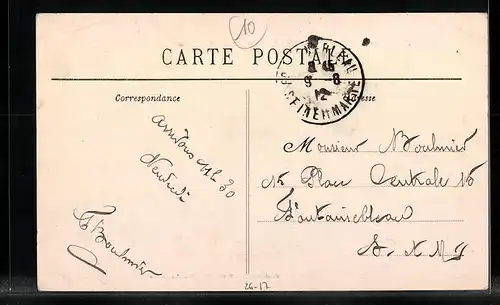 10
CARTE POSTALE
8 45
9 - 8
12
SEINE ET MARNE
Correspondance
Adresse
arrivons 11h 30
Vendredi
Boulmier
Monsieur Boulmier
Place Centrale
Fontainebleau
S. & M
26-12